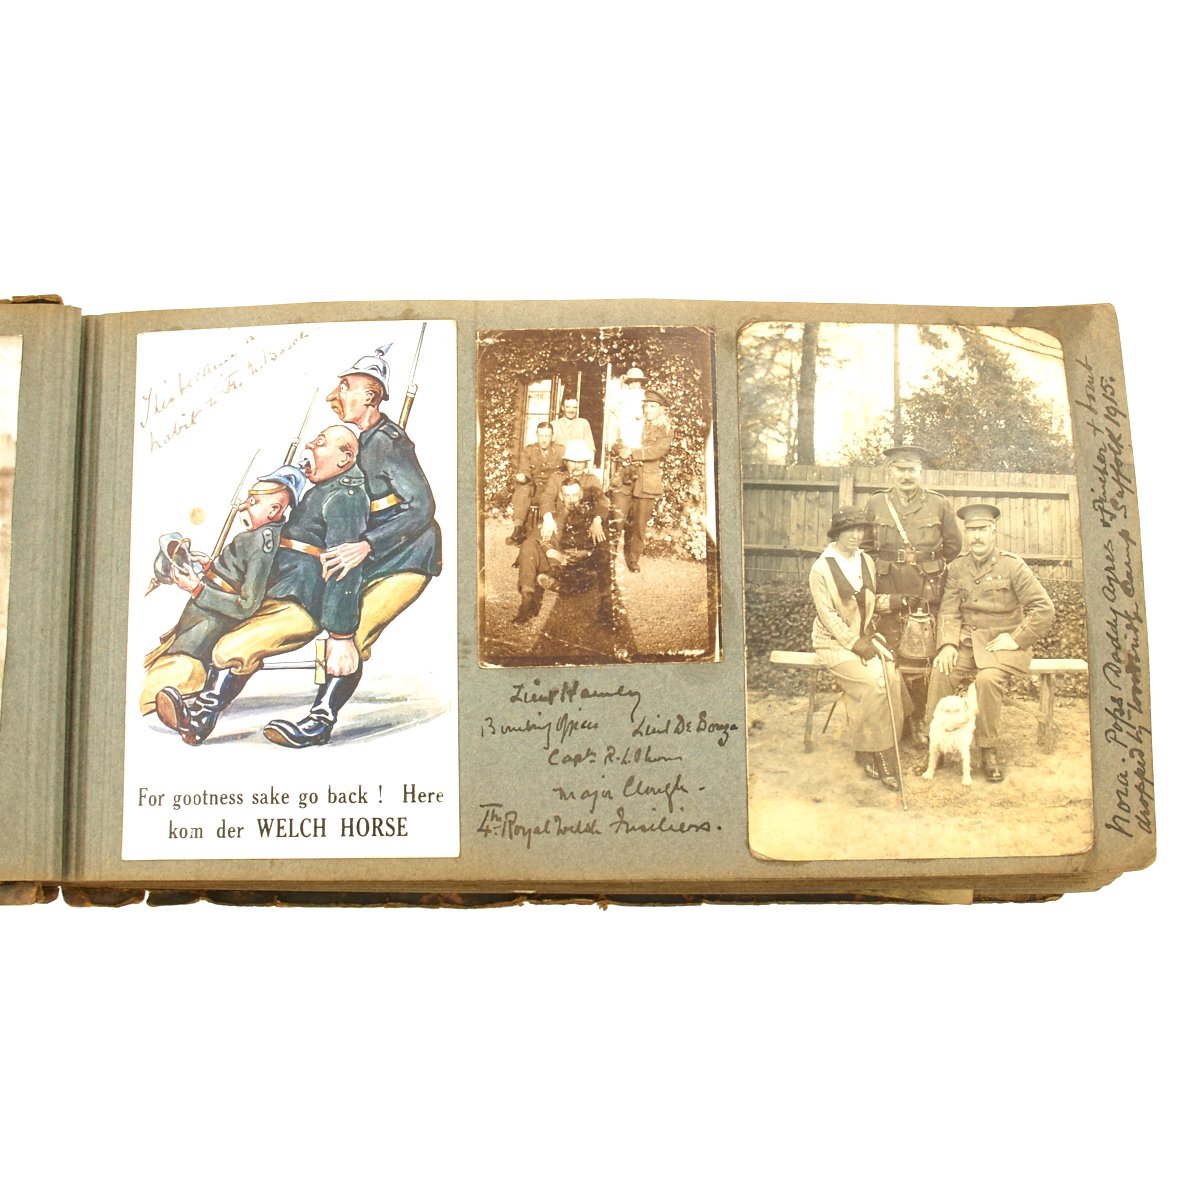 This became a
habit with the
For gootness sake go back ! Here
kom der WELCH HORSE
Lieut
Bombing Officer Lieut De Bouza
Capt. R. L.
Major Clough -
4th Royal Welsh Fusiliers.
Nora. Pops
dropped by Woodbridge Camp Suffolk 1915.